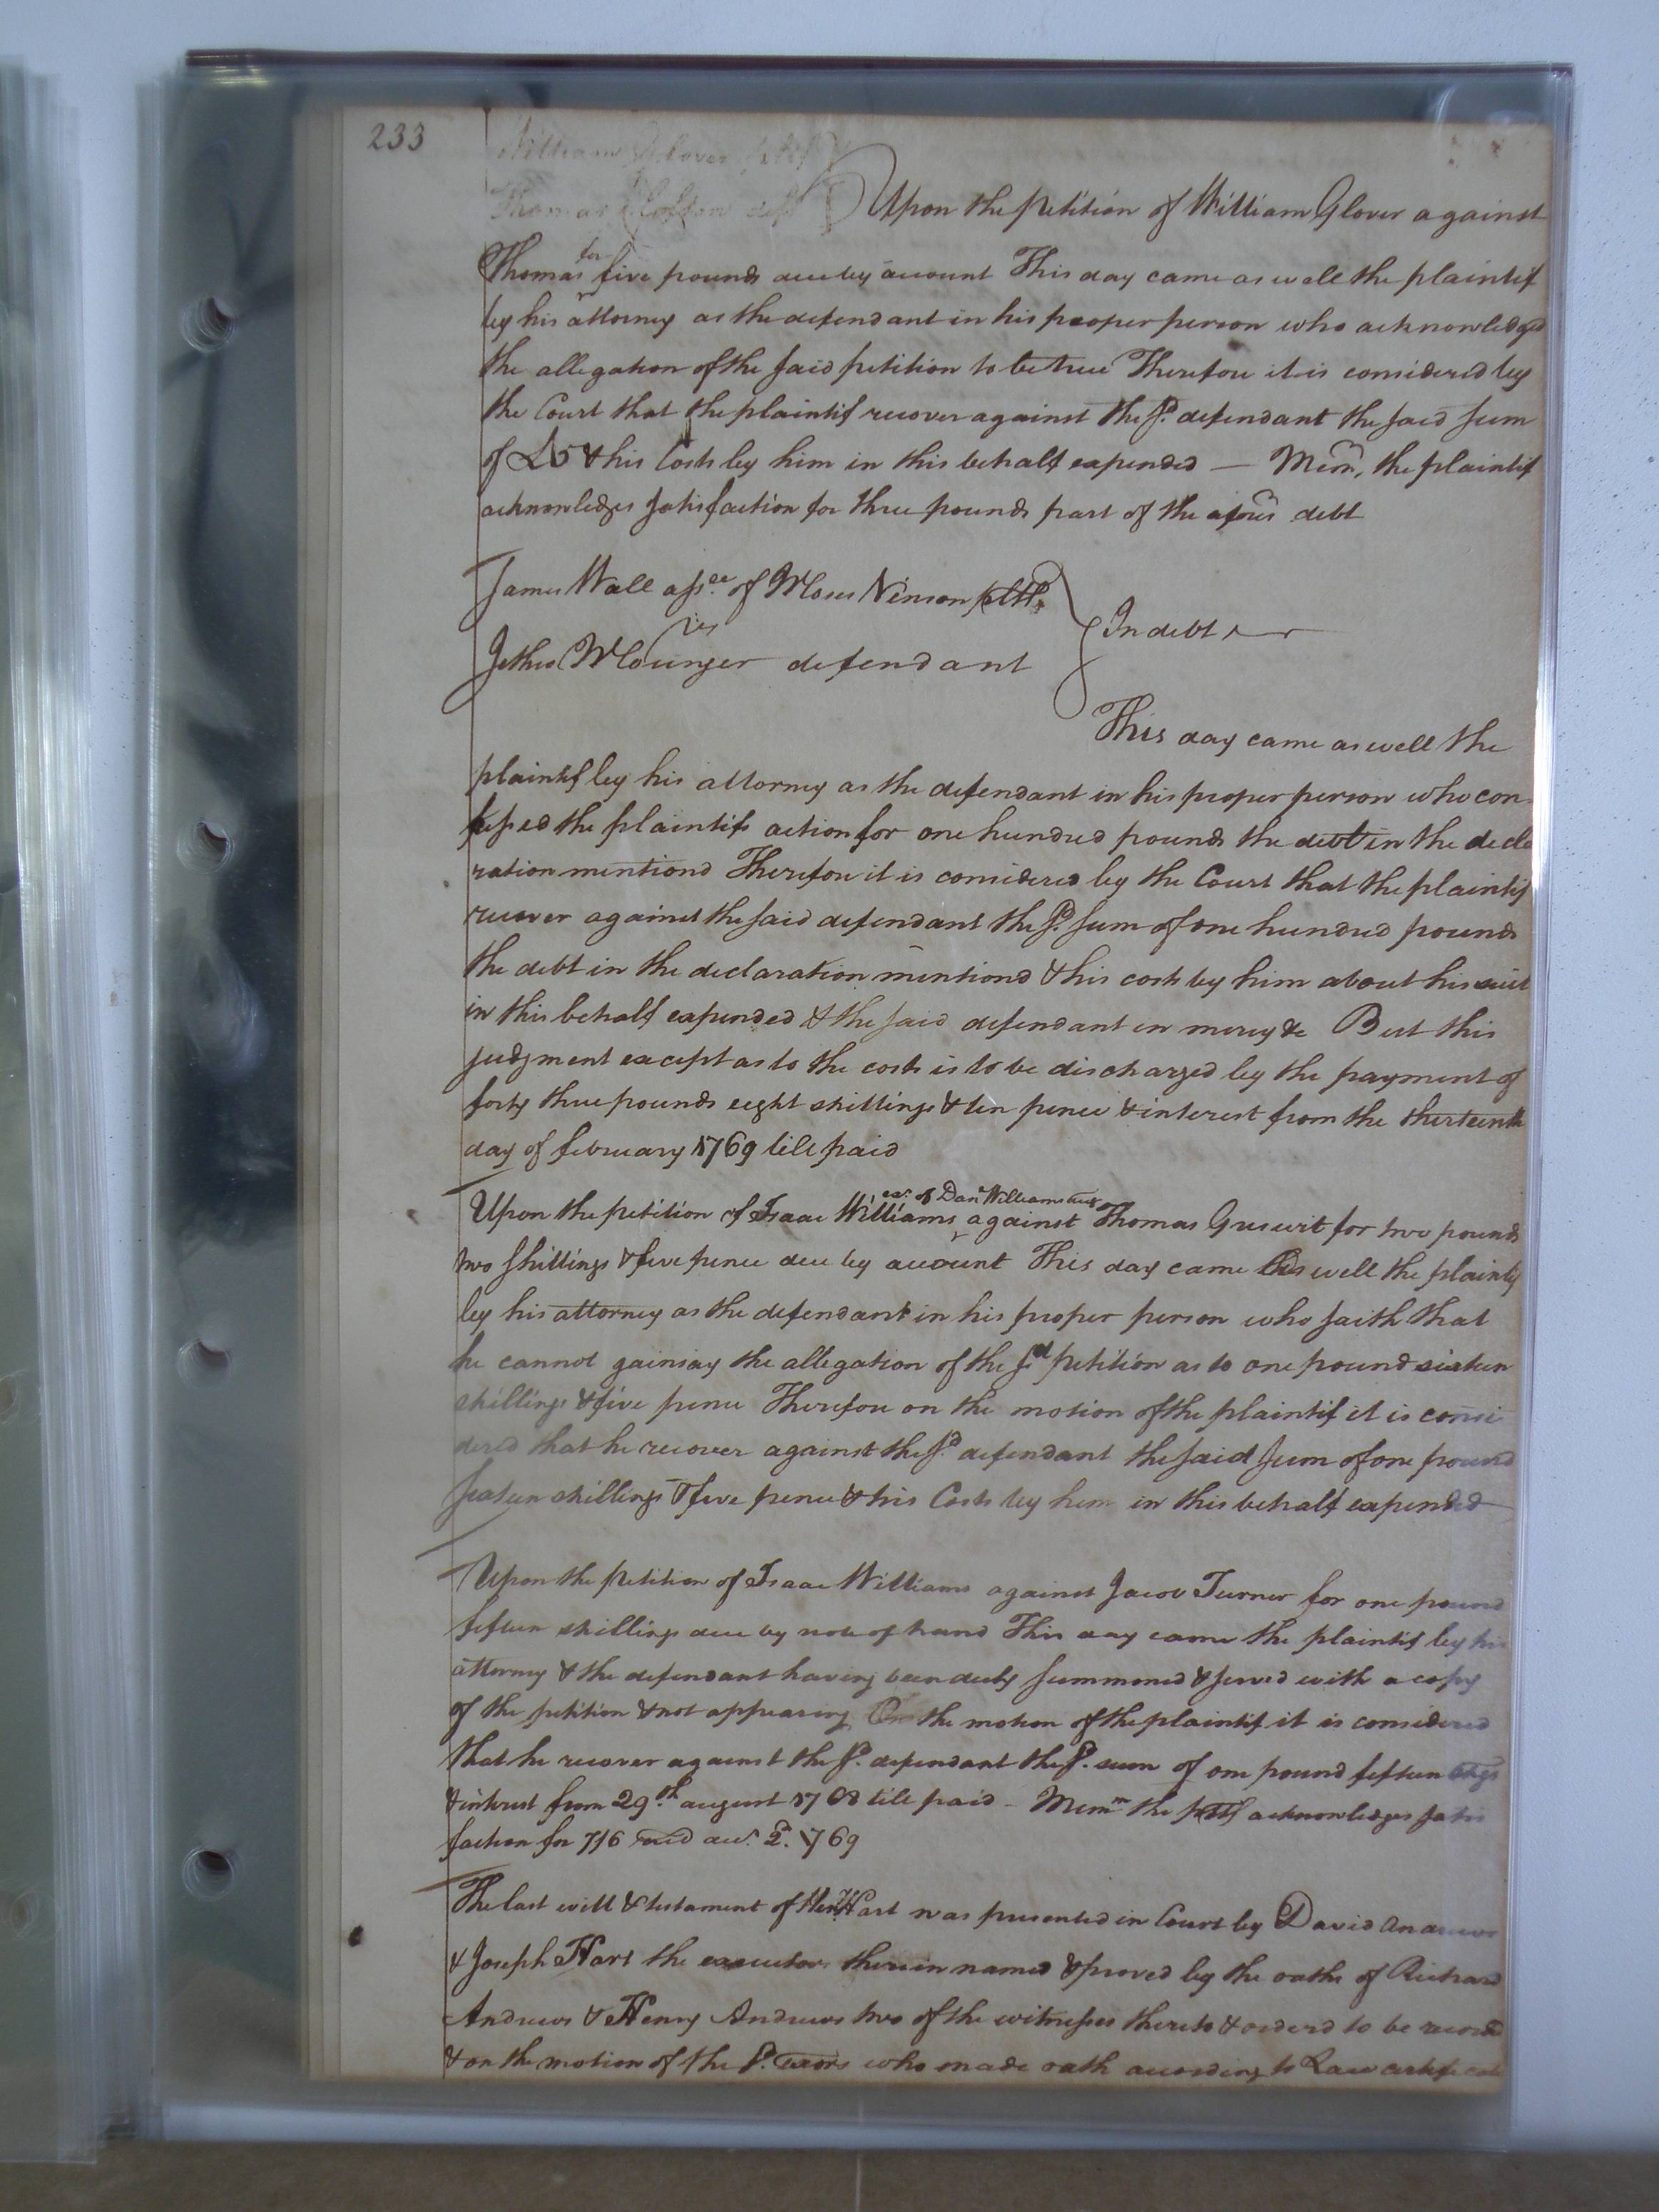 233
William Glover pltf
Thomas defd
Upon the petition of William Glover against
for
Thomas five pounds due by account This day came as well the plaintif
by his attorney as the defendant in his proper person who acknowledged
the allegation of the said petition to be true Therefore it is considered by
the Court that the plaintif recover against the sd. defendant the said sum
of £5 & his Costs by him in this behalf expended — Mem, the plaintif
acknowledges satisfaction for three pounds part of the afors debt
James Wall asse. of Moses Vinson pltf
vs
In debt
Jethro Mounger defendant
This day came as well the
plaintif by his attorney as the defendant in his proper person who con
fessed the plaintifs action for one hundred pounds the debt in the decla
ration mentiond Therefore it is considered by the Court that the plaintif
recover against the said defendant the sd. sum of one hundred pounds
the debt in the declaration mentiond & his costs by him about his suit
in this behalf expended & the said defendant in mercy &c But this
judgment except as to the costs is to be discharged by the payment of
forty three pounds eight shillings & ten pence & interest from the thirteenth
day of february 1769 till paid
exr. of Danl Williams
Upon the petition of Isaac Williams against Thomas Guswit for two pounds
two shillings & five pence due by account This day came as well the plaintif
by his attorney as the defendant in his proper person who saith that
he cannot gainsay the allegation of the sd petition as to one pound sixteen
shillings & five pence Therefore on the motion of the plaintif it is consi
dered that he recover against the sd. defendant the said sum of one pound
sixteen shillings & five pence & his Costs by him in this behalf expended
Upon the petition of Isaac Williams against Jacob Turner for one pound
fifteen shillings due by note of hand This day came the plaintif by his
attorney & the defendant having been duly summoned & served with a copy
of the petition & not appearing On the motion of the plaintif it is considered
that he recover against the sd. defendant the sd. sum of one pound fifteen
& interest from 29th. august 1768 till paid - Memm the pltf acknowledges satis
faction for 7/6 recd 2d. 1769
The last will & testament of Hen. Hart was presented in Court by David Andrews
& Joseph Hart the executors therein named & proved by the oaths of Richard
Andrews & Henry Andrews two of the witnesses thereto & orderd to be recorded
& on the motion of the sd. exors who made oath according to Law certificate